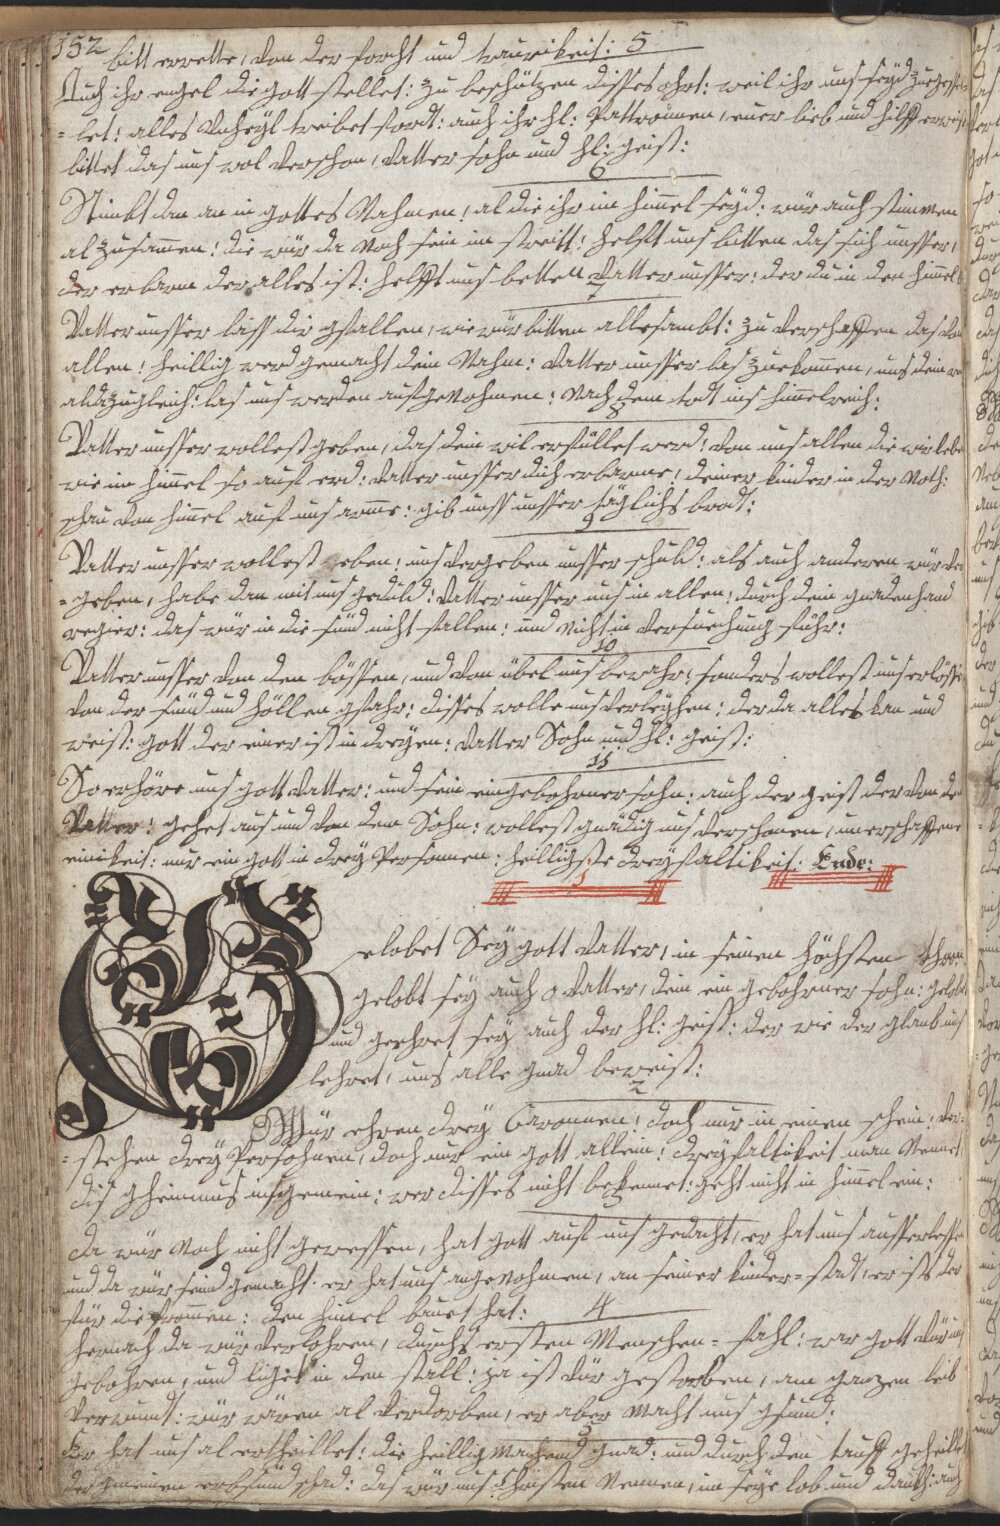 152 bitt errette, von der forcht und traurikeit: 5
Auch ihr engel die gott stellet: zu beschützen disses ohrt: weil ihr uns seyd zuegesel
=let: alles Unheyl treibet fordt: auch ihr hl: Pattronnen, euer lieb und hilff
bittet das uns wol verschon, Vatter sohn und hl: geist:
6
Stimbt dan an in gottes Nahmen, al die ihr im himel seyd: wür auch stimmen
alzusamen: die wür da noch sein im streitt: helfft uns bitten das sich unsser,
der erbarm der alles ist: helfft uns betten Vatter unsser: der du in den himel
7
Vatter unsser lass dir gfallen, wie wür bitten allesambt: zu verschaffen das von
allen: heillig werd gemacht dein Nahm: Vatter unsser las zuekomen, uns dein
alda zugleich: las uns werden aufgenohmen: nach dem todt ins himelreich:
8
Vatter unsser wollest geben, das dein wil erfüllet werd: von uns allen die wir lebe
wie im himel so auf erd: Vatter unsser dich erbarme: deiner kinder in der Noth:
schau von himel auf uns arme: gib unss unsser täglichs brodt:
9
Vatter unsser wollest geben: uns vergeben unsser schuld: als auch anderen wür ver
=geben, habe dan mit uns geduld: Vatter unsser uns in allen: durch dein gnadenhand
regier: das wür in die sünd nicht fallen: und nicht in versuechung führ:
10
Vatter unsser von dem bössen, und von übel uns bewahr: sonders wollest uns erlösse
von der sünd und höllen gfahr: disses wolle uns verleyhen: der da alles kan und
weist: gott der einer ist in dreyen: Vatter Sohn und hl: geist:
11
So erhöre uns gott Vatter: und sein eingebohrner sohn: auch der geist der von dem
Vatter: gehet aus und von dem Sohn: wollest gnädig uns verschonen, unerschaffene
einikeit: nur ein gott in drey Personnen: heilligste dreyfaltikeit: Ende:
1
Gelobet Sey gott Vatter, in seinen höchsten thron
gelobt sey auch o Vatter, dein ein gebohrner sohn: gelobt
und geehret sey auch der hl: geist: der wie der glaub uns
lehret, uns alle gnad beweist:
2
Wür ehren drey Cronnen: doch nur in einen schein: ver=
=stehen drey Persohnen, doch nur ein gott allein: dreyfaltikeit man Nennet
dis gheimnus insgemein: wer disses nicht bekennet: geht nicht in himel ein:
3
da wür noch nicht gewessen, hat gott auf uns gedacht, er hat uns ausserlessen
und da wür seind gemacht: er hat uns angenohmen, an seiner kinder=stadt, er ists der
für die fromen: den himel bauet hat:
4
hernach da wür verlohren, durchs ersten Menschen=fahl: war gott vür uns
gebohren, und liget in den stall: ja ist vür gestorben, am ganzen leib
verwundt: wür wären al verdorben, er aber macht uns gsund:
5
Er hat uns al ertheillet: die heillig machend gnad: und durch den tauff geheillet
der gmeinen erbsünd schad: das wür uns Christen Nennen, im seye lob und danckh: auch